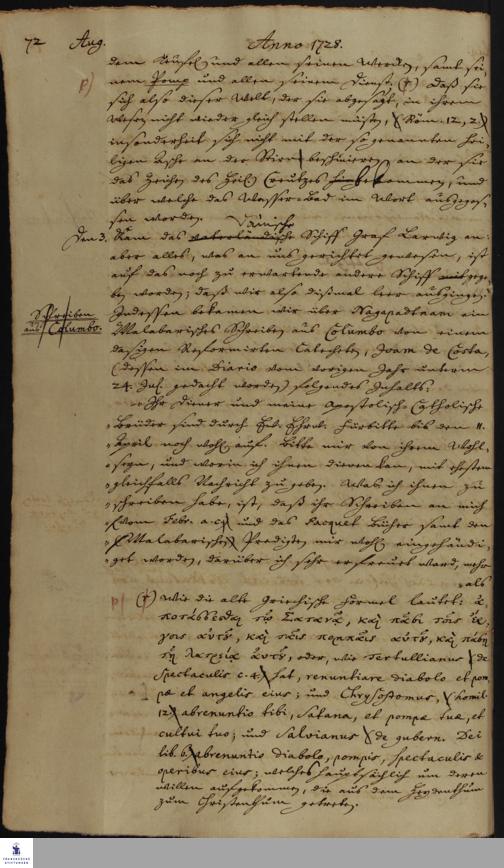 72 Aug. Anno 1728.
dem Teufel und allen seinen Wercken, samt sei-
nem Pomp und allen seinem Dienst, (†) Daß sie
p)
sich also dieser Welt, der sie abgesagt, in ihrem
Wesen nicht wieder gleich stellen müssen, Röm. 12, 2.
insonderheit sich nicht mit der sogenannten hei-
ligen Asche an der Stirn beschmieren, an der sie
das Zeichen des Heil. Creutzes bekommen, und
über welche das Wasser-Bad im Wort ausgegos-
sen worden.
Dänische
Den 3. Kam das vaterländische Schiff Graf Larwig an:
aber alles, was an uns gerichtet gewesen, ist
auf das noch zu erwartende andere Schiff gege-
ben worden; daß wir also dißmal leer ausgingen.
Schreiben
aus Columbo.
Indessen bekamen wir über Nagapadnam ein
Malabarisches Schreiben aus Columbo von einem
dasigen Reformirten Catecheten, Joam de Costa,
(dessen im Diario vom vorigen Jahr unterm
24. gedacht worden) folgendes Inhalts.
Ihr Diener und meine Apostolisch-Catholische
Brüder sind durch Ew. Ehrw. Fürbitte bis den 11.
April noch wohl auf. Bitte mir von ihrem Wohl-
seyn, und worin ich ihnen dienen kan, mit ehestem
gleichfalls Nachricht zu geben. Was ich ihnen zu
schreiben habe, ist, daß ihr Schreiben an mich
vom Febr. a. c. und das Pacquet Bücher samt den
Malabarischen Predigten mir wohl eingehändi-
get worden, darüber ich sehr erfreuet ward, mehr
als
p) (†) Wie die alte Griechische Formel lautet: ἀ-
ποτάσσεσθαι τῷ Σατανᾷ, καὶ πᾶσι τοῖς ἔρ-
γοις αὐτοῦ, καὶ ταῖς πομπαῖς αὐτοῦ, καὶ πάσῃ
τῇ λατρείᾳ αὐτοῦ, oder, wie Tertullianus de
Spectaculis c. 4. hat, renuntiare diabolo et pom-
pæ et angelis eius; und Chrysostomus, homil.
12. abrenuntio tibi, Satana, et pompæ tuæ, et
cultui tuo; und Salvianus de gubern. Dei
lib. 6. abrenuntio diabolo, pompis, spectaculis &
operibus eius; welches hauptsächlich um deren
willen aufgekommen, die aus dem Heydenthum
zum Christenthum getreten.
FRANCKESCHE
STIFTUNGEN